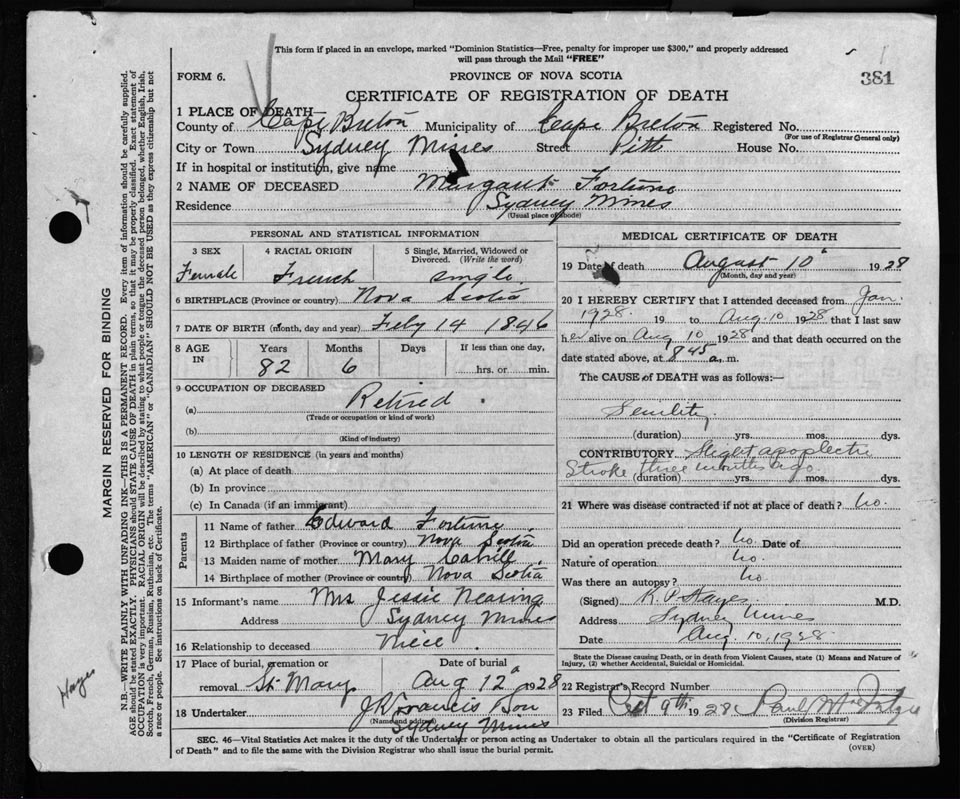 This form if placed in an envelope, marked "Dominion Statistics—Free, penalty for improper use $300," and properly addressed
will pass through the Mail "FREE"
FORM 6.
PROVINCE OF NOVA SCOTIA
381
CERTIFICATE OF REGISTRATION OF DEATH
1 PLACE OF DEATH
County of Cape Breton Municipality of Cape Breton Registered No.
(For use of Registrar General only)
City or Town Sydney Mines Street Pitt House No.
If in hospital or institution, give name
2 NAME OF DECEASED Margaret Fortune
Residence Sydney Mines
(Usual place of abode)
PERSONAL AND STATISTICAL INFORMATION
3 SEX 4 RACIAL ORIGIN 5 Single, Married, Widowed or
Divorced. (Write the word)
Female French single
6 BIRTHPLACE (Province or country) Nova Scotia
7 DATE OF BIRTH (month, day and year) Feby 14 1846
8 AGE IN Years Months Days If less than one day,
82 6 hrs. or min.
9 OCCUPATION OF DECEASED
(a) Retired
(Trade or occupation or kind of work)
(b)
(Kind of industry)
10 LENGTH OF RESIDENCE (in years and months)
(a) At place of death
(b) In province
(c) In Canada (if an immigrant)
Parents
11 Name of father Edward Fortune
12 Birthplace of father (Province or country) Nova Scotia
13 Maiden name of mother Mary Cahill
14 Birthplace of mother (Province or country) Nova Scotia
15 Informant's name Mrs Jessie Nearing
Address Sydney Mines
16 Relationship to deceased Niece
17 Place of burial, cremation or Date of burial
removal St. Marys Aug 12 1928
18 Undertaker J R Francis Son
(Name and address)
Sydney Mines
MEDICAL CERTIFICATE OF DEATH
19 Date of death August 10 1928
(Month, day and year)
20 I HEREBY CERTIFY that I attended deceased from Jan.
1928 19 to Aug. 10 1928 that I last saw
her alive on Aug 10 1928 and that death occurred on the
date stated above, at 8 45 a. m.
The CAUSE of DEATH was as follows:—
Senility
(duration) yrs. mos. dys.
CONTRIBUTORY Slight apoplectic
Stroke three months ago
(duration) yrs. mos. dys.
21 Where was disease contracted if not at place of death? No.
Did an operation precede death? No. Date of
Nature of operation No.
Was there an autopsy? No
(Signed) Hayes M.D.
Address Sydney Mines
Date Aug. 10, 1928
State the Disease causing Death, or in death from Violent Causes, state (1) Means and Nature of
Injury, (2) whether Accidental, Suicidal or Homicidal.
22 Registrar's Record Number
23 Filed Oct 9th 1928 Paul
(Division Registrar)
SEC. 46—Vital Statistics Act makes it the duty of the Undertaker or person acting as Undertaker to obtain all the particulars required in the "Certificate of Registration
of Death" and to file the same with the Division Registrar who shall issue the burial permit.
(OVER)
MARGIN RESERVED FOR BINDING
N.B.—WRITE PLAINLY WITH UNFADING INK—THIS IS A PERMANENT RECORD. Every item of information should be carefully supplied.
AGE should be stated EXACTLY. PHYSICIANS should STATE CAUSE OF DEATH in plain terms, so that it may be properly classified. Exact statement of
OCCUPATION is very important. RACIAL ORIGIN will be described by stating to what people or tongue the deceased person belonged, whether English, Irish,
Scotch, French, German, Russian, Ruthenian, etc. The terms "AMERICAN" or "CANADIAN" SHOULD NOT BE USED as they express citizenship but not
a race or people. See instructions on back of Certificate.
Hayes